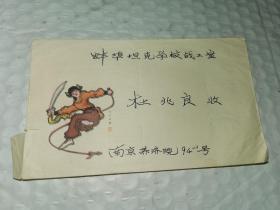 蚌埠坦克学校战工室
杜兆良收
南京孝陵卫94#号